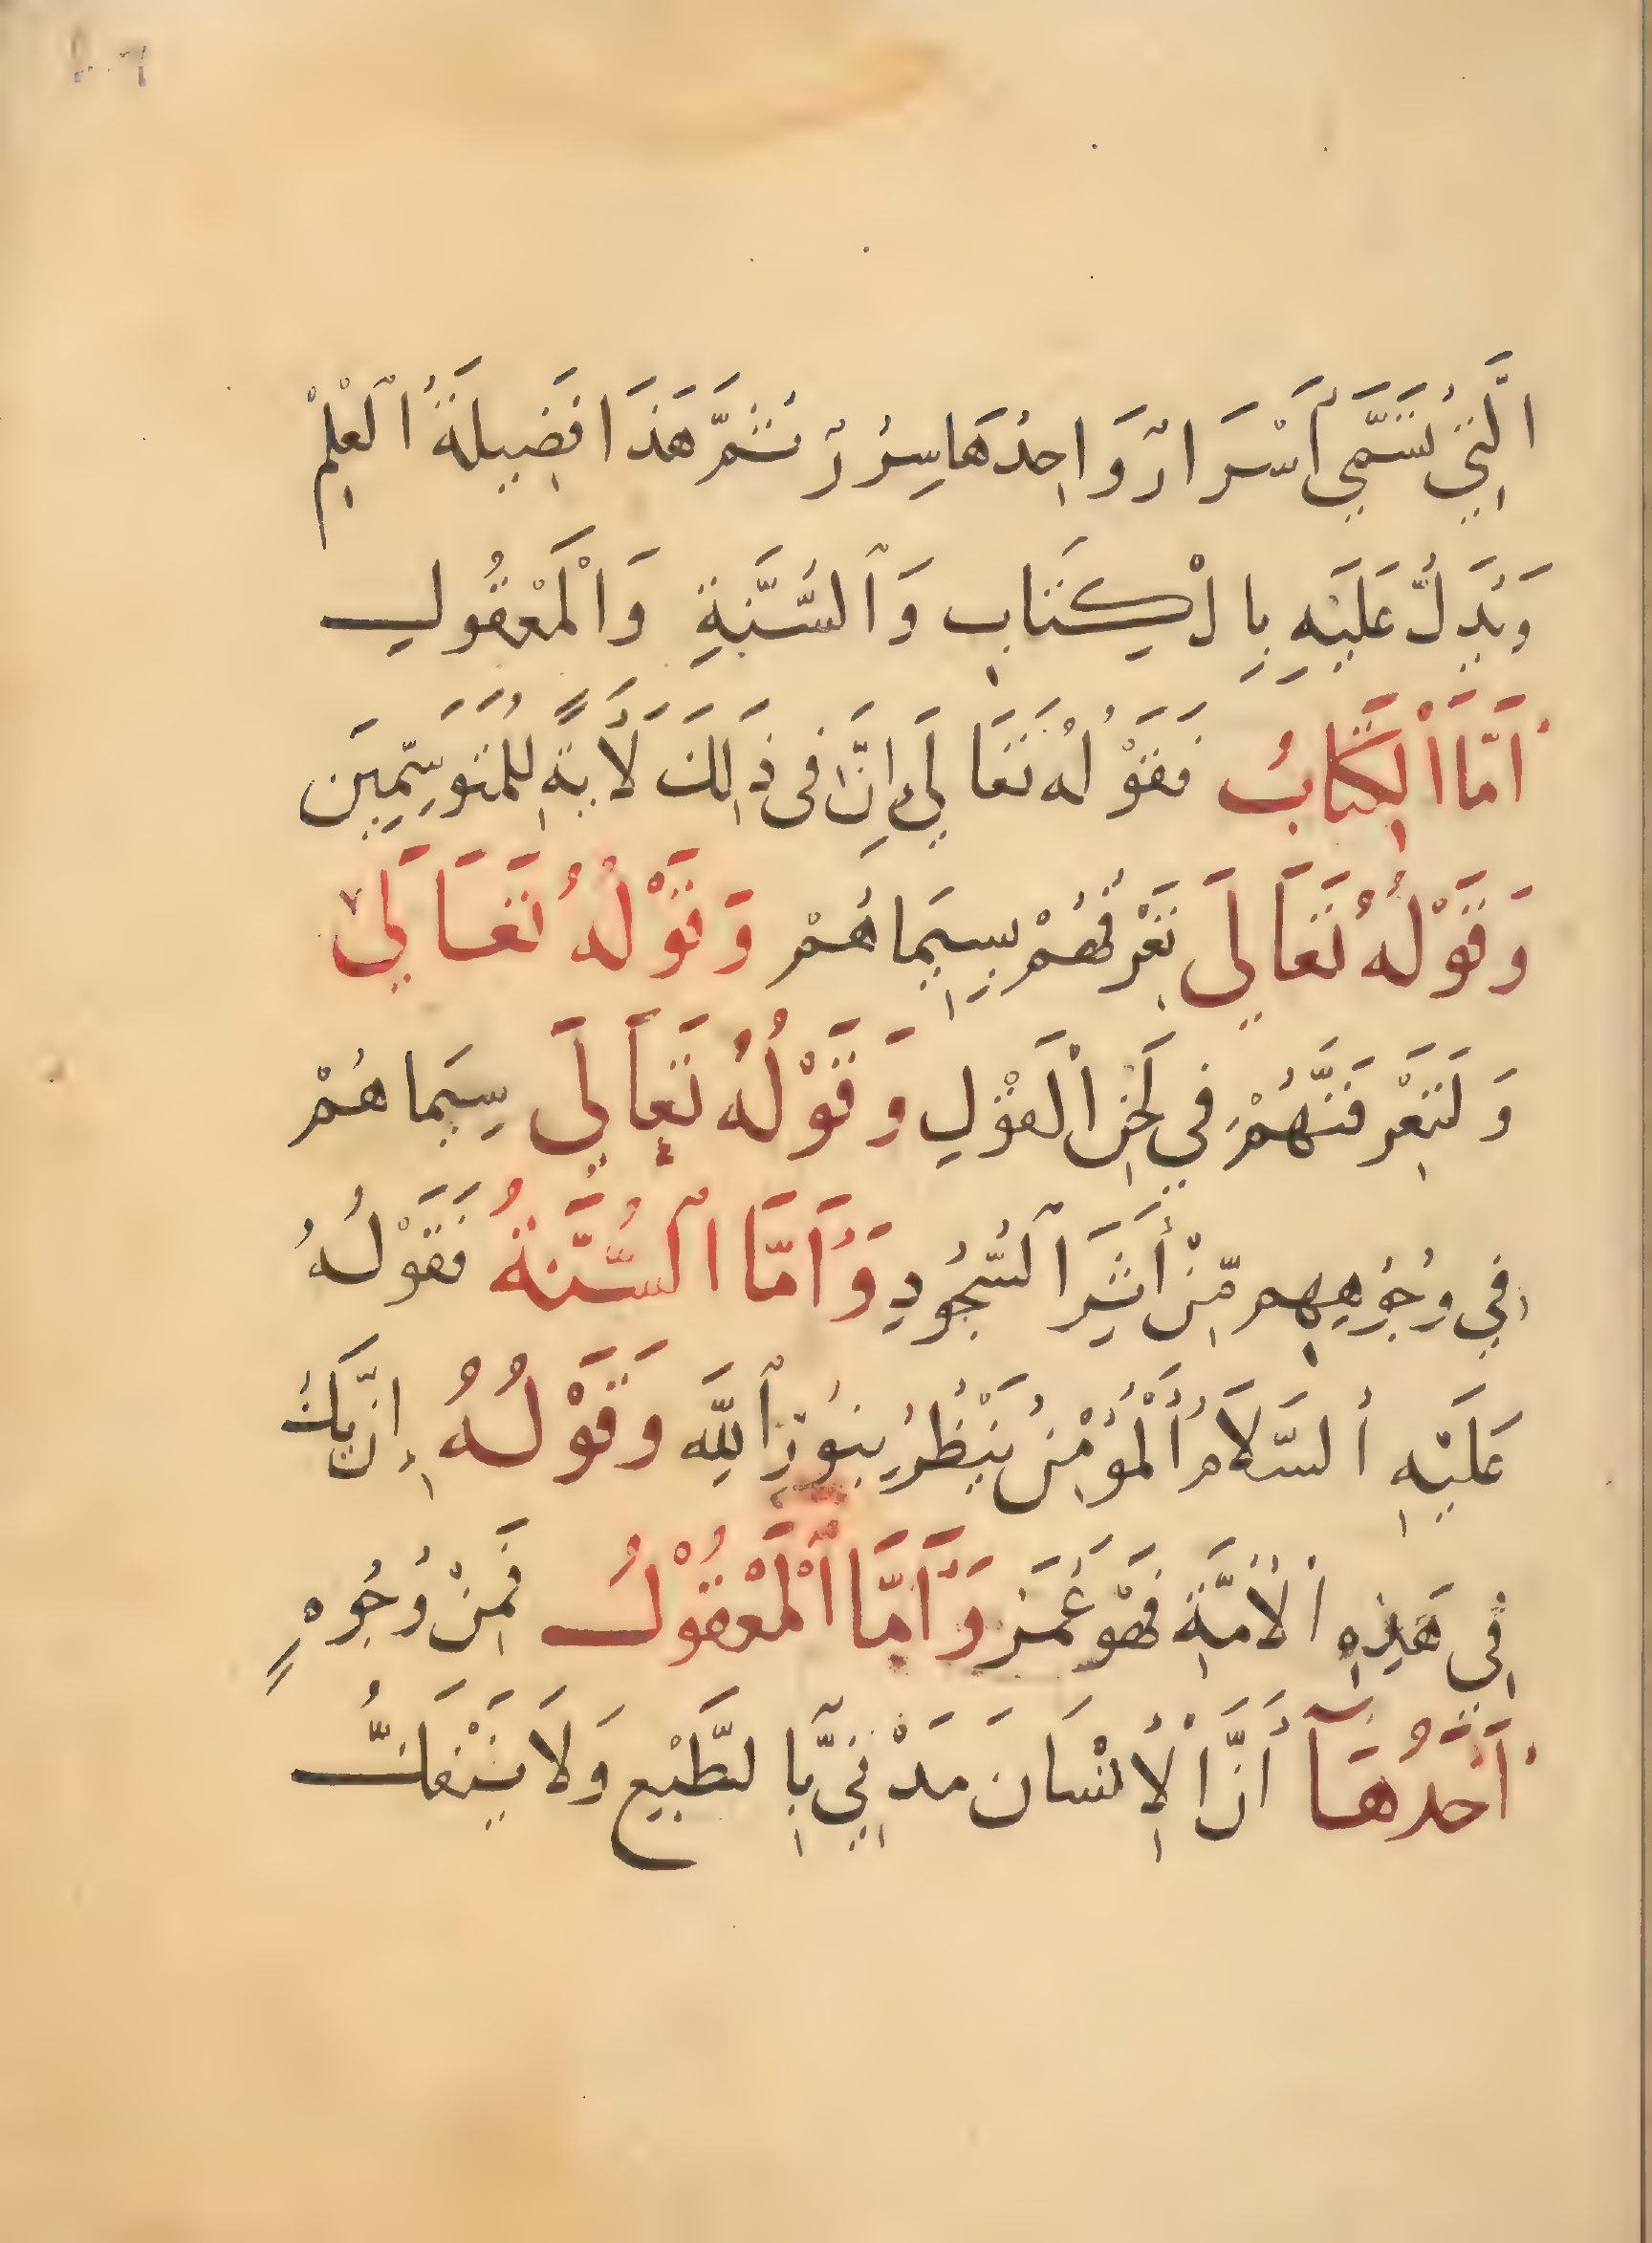 الَّتِي تُسَمَّي أَسْرَارٌ وَاحِدُهَا سِرُرٌ ثُمَّ هَذَا فَضِيلَةُ ٱلْعِلْمْ
وَيَدَلُّ عَلَيْهِ بِالْكِتَابِ وَٱلسُّنَّةِ وَالْمَعْقُولِ
أَمَّا ٱلْكِتَابُ فَقَوْلُهُ تَعَالَي إِنَّ فِي ذَالِكَ لَآيَةً لِلْمُتَوَسِّمِيَن
وَقَوْلُهُ تَعَالَي تَعْرِفُهُمْ بِسِيَمَاهُمْ وَقَوْلُهُ تَعَالَي
وَلَتَعْرِفَنَّهُمْ فِي لَحْنِ ٱلْقَوْلِ وَقَوْلُهُ تَعَالَي سِيَمَاهُمْ
فِي وُجُوهِهِم مِّنْ أَثَرِ ٱلسُّجُودِ وَأَمَّا ٱلسُّنَّةُ فَقَوْلُهُ
عَلَيْهِ ٱلسَّلَامُ ٱلْمُؤْمِنُ يَنْظُرُ بِنُوْرِ ٱللَّهِ وَقَوْلُهُ إِنْ يَكُ
فِي هَذِهِ ٱلْأُمَّةِ فَهْوَ عُمَرَ وَأَمَّا ٱلْمَعْقُوْلُ فَمِنْ وُجُوهٍ
أَحَدُهَآ أَنَّ ٱلْإِنْسَانَ مَدْنِيٌّ بِٱلطَّبْعِ وَلَا يَنْفَكُّ